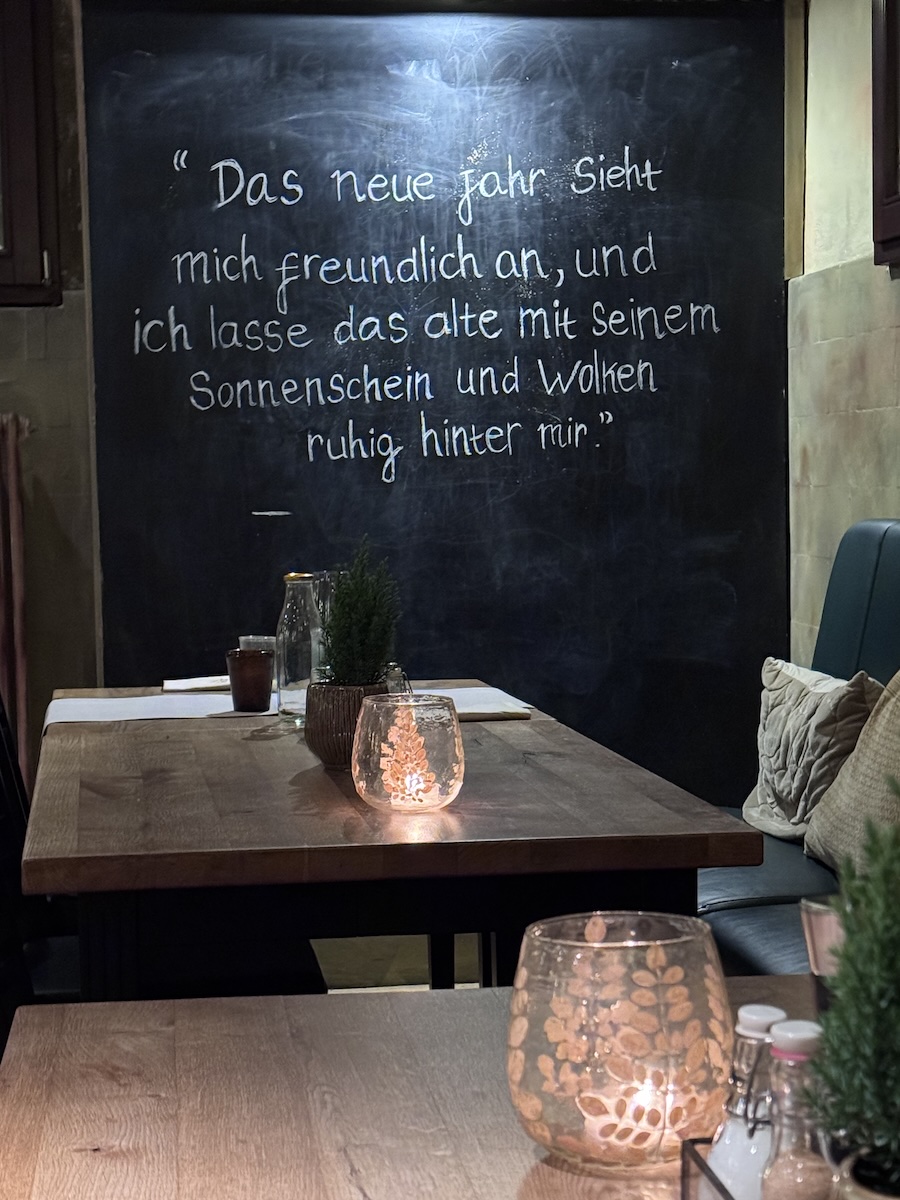 “Das neue jahr sieht
mich freundlich an, und
ich lasse das alte mit seinem
Sonnenschein und Wolken
ruhig hinter mir.”